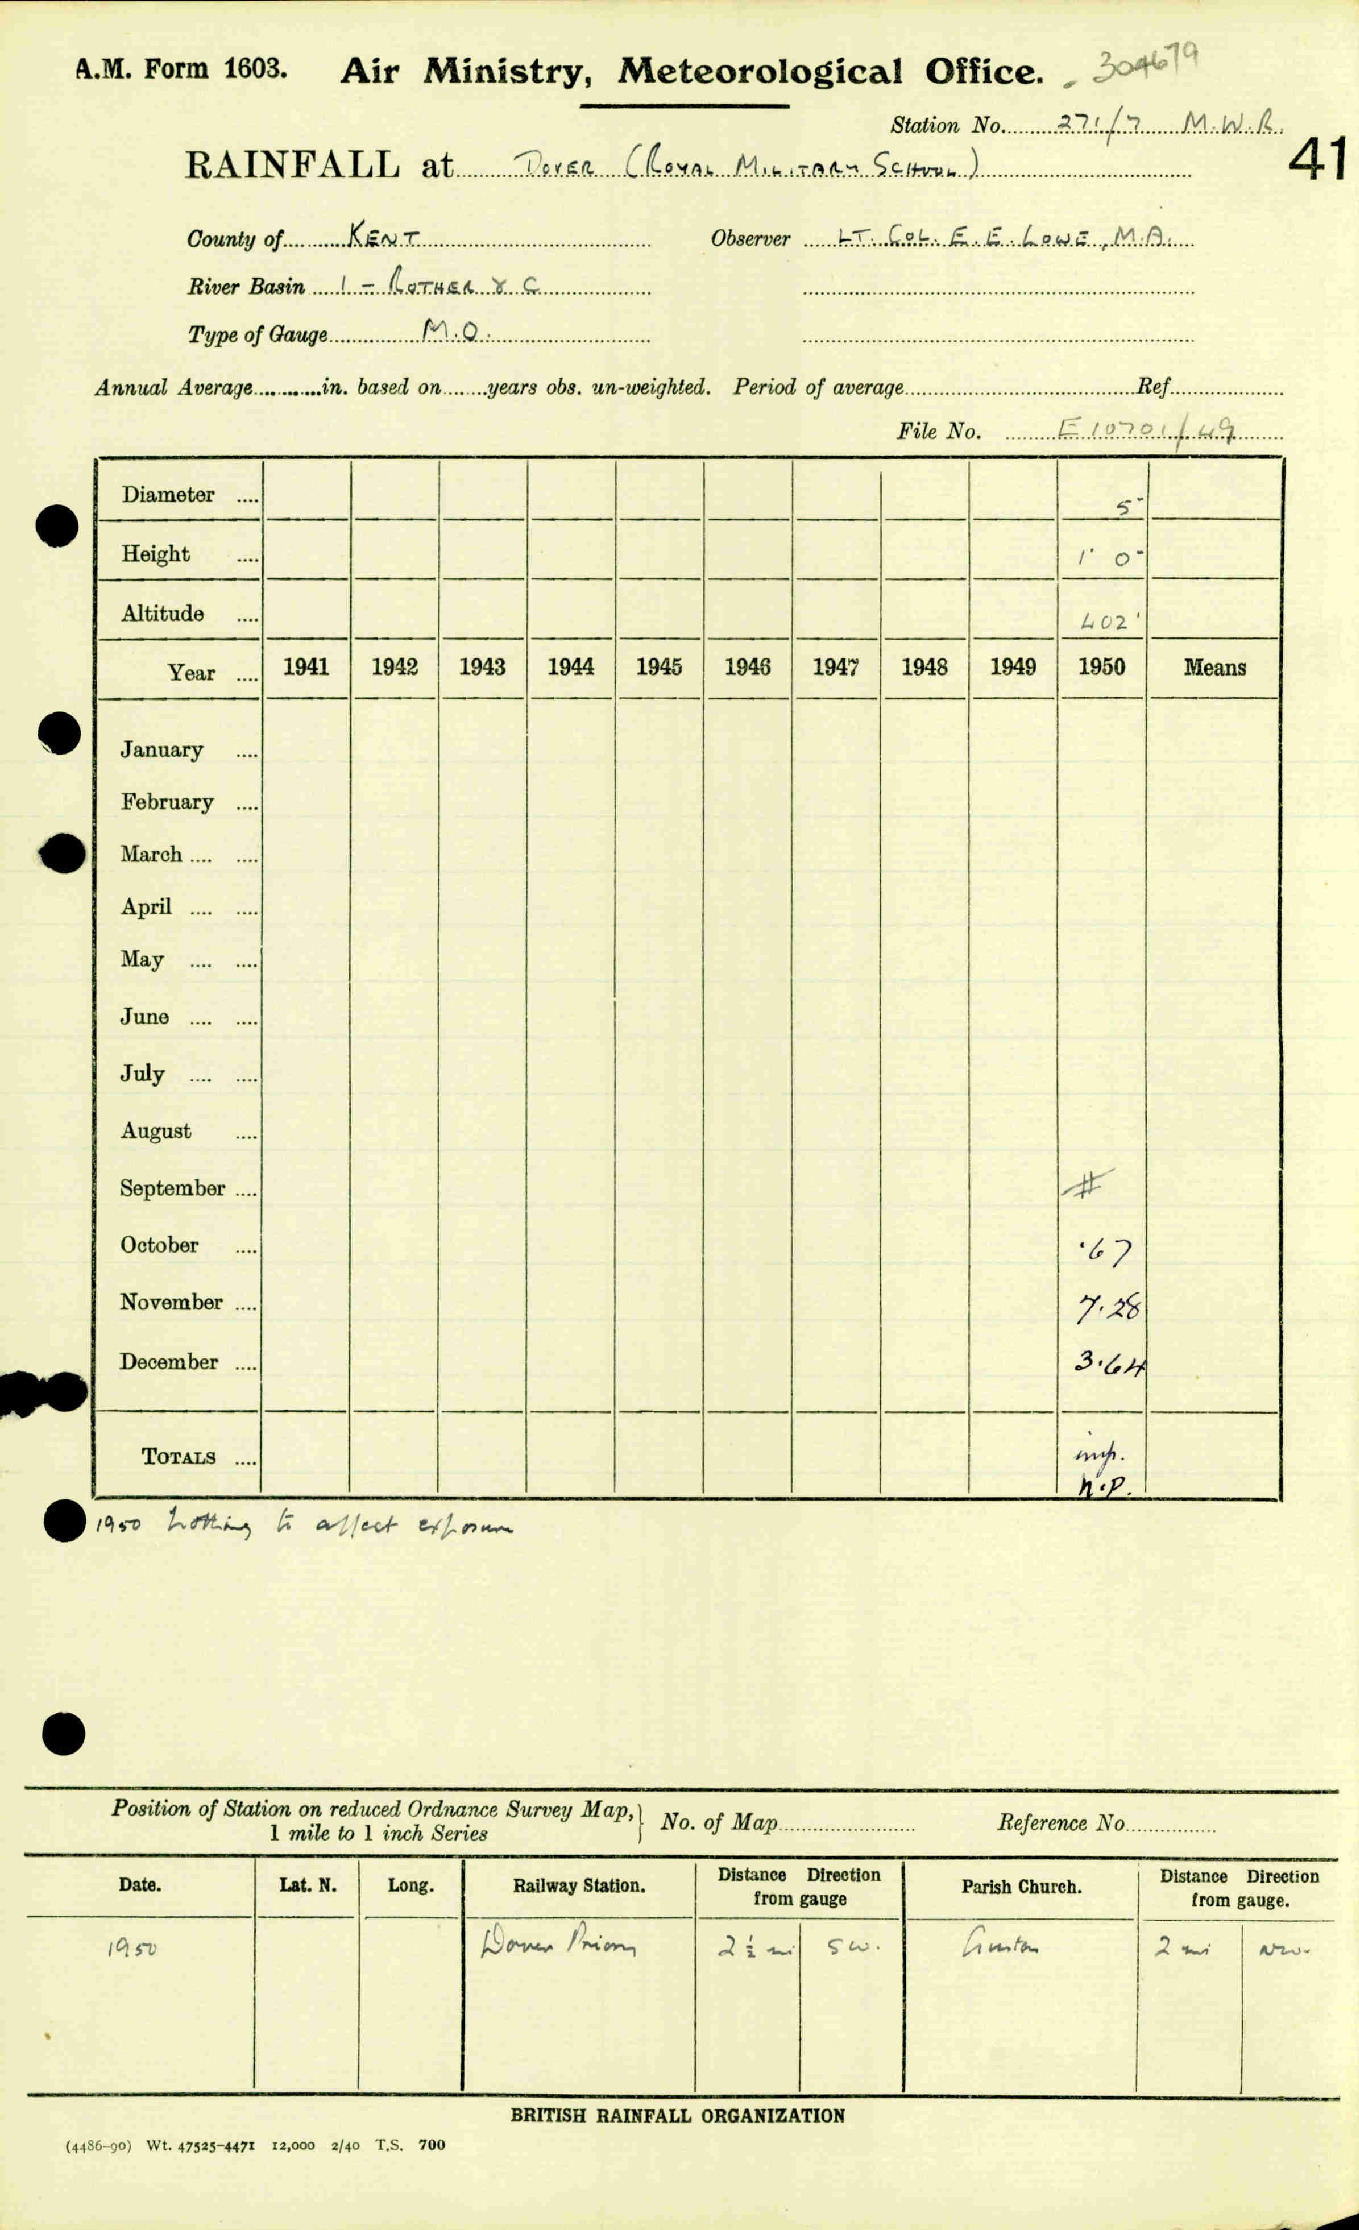 A.M. Form 1603. Air Ministry, Meteorological Office. 304679
Station No. 271/7 M.W.R.
RAINFALL at DOVER (ROYAL MILITARY SCHOOL) 41
County of KENT Observer LT. COL. E. E. LOWE, M.A.
River Basin 1 - ROTHER & C
Type of Gauge M.O.
Annual Average in. based on years obs. un-weighted. Period of average Ref.
File No. E 10701/49
Diameter 5"
Height 1' 0"
Altitude 402'
Year 1941 1942 1943 1944 1945 1946 1947 1948 1949 1950 Means
January
February
March
April
May
June
July
August
September #
October ·67
November 7·28
December 3·64
TOTALS imp.
n.p.
1950 Nothing to affect exposure
Position of Station on reduced Ordnance Survey Map, } No. of Map Reference No.
1 mile to 1 inch Series
Date. Lat. N. Long. Railway Station. Distance Direction from gauge Parish Church. Distance Direction from gauge.
1950 Dover Priory 2½ mi SW. Guston 2 mi NW.
BRITISH RAINFALL ORGANIZATION
(4486-90) Wt. 47525-4471 12,000 2/40 T.S. 700